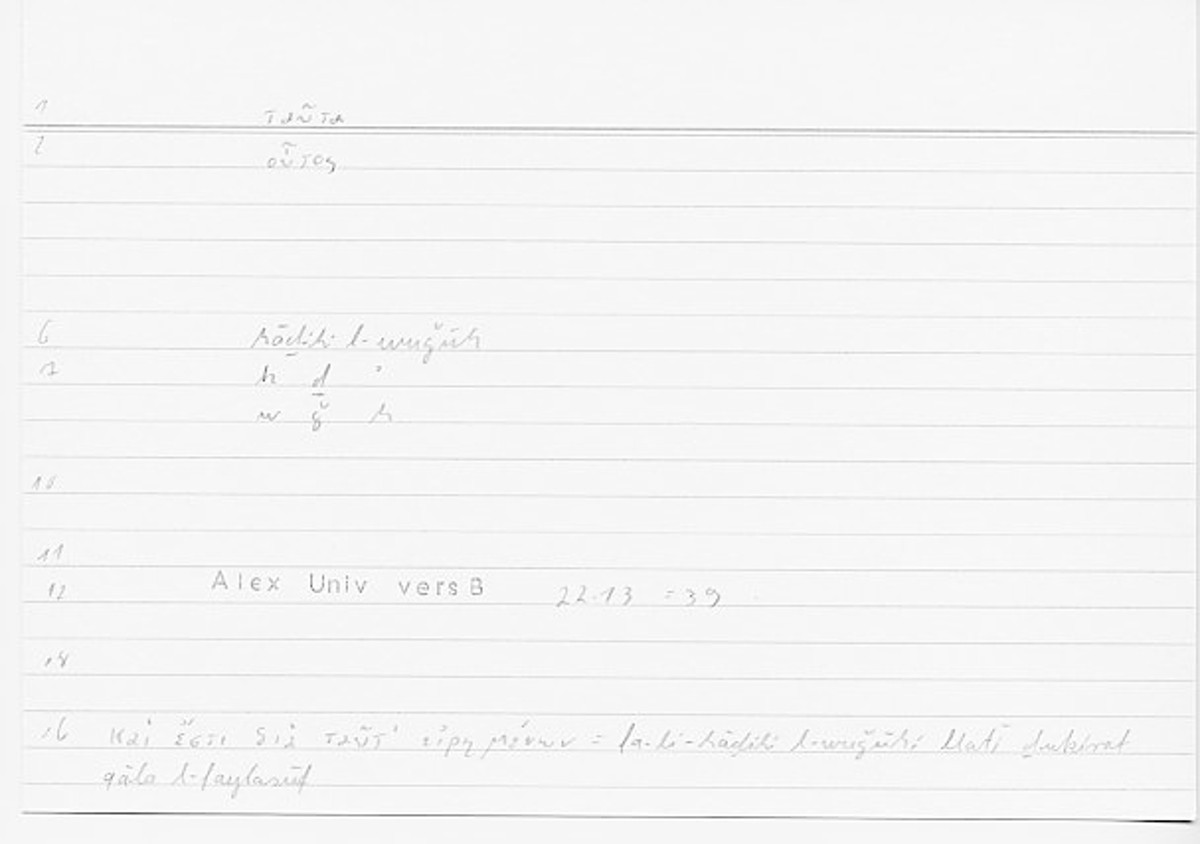 1 ταῦτα
2 οὗτος
6 hāḏihi l-wuǧūh
7 h ḏ ʾ
w ǧ h
10
11
12 Alex Univ vers B 22.13 = 39
14
16 καί ἔστι διὰ ταῦτ' εἰρημένων = fa-li-hāḏihi l-wuǧūhi llatī ḏukirat
qāla l-faylasūf